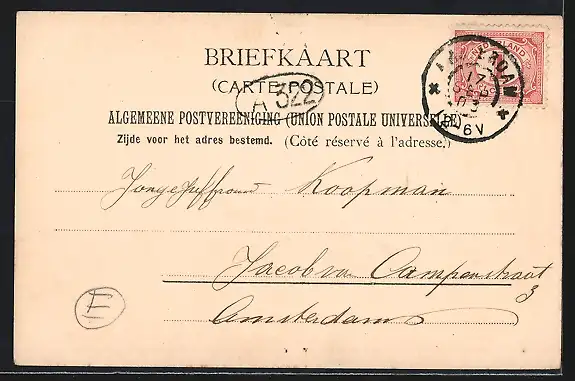 BRIEFKAART
(CARTE POSTALE)
A 322
ALGEMEENE POSTVEREENIGING (UNION POSTALE UNIVERSELLE)
Zijde voor het adres bestemd. (Côté réservé à l'adresse.)
NEDERLAND
AMSTERDAM
17
03
6V
Jongejuffrouw Koopman
Jacob van Campenstraat
3
Amsterdam
E